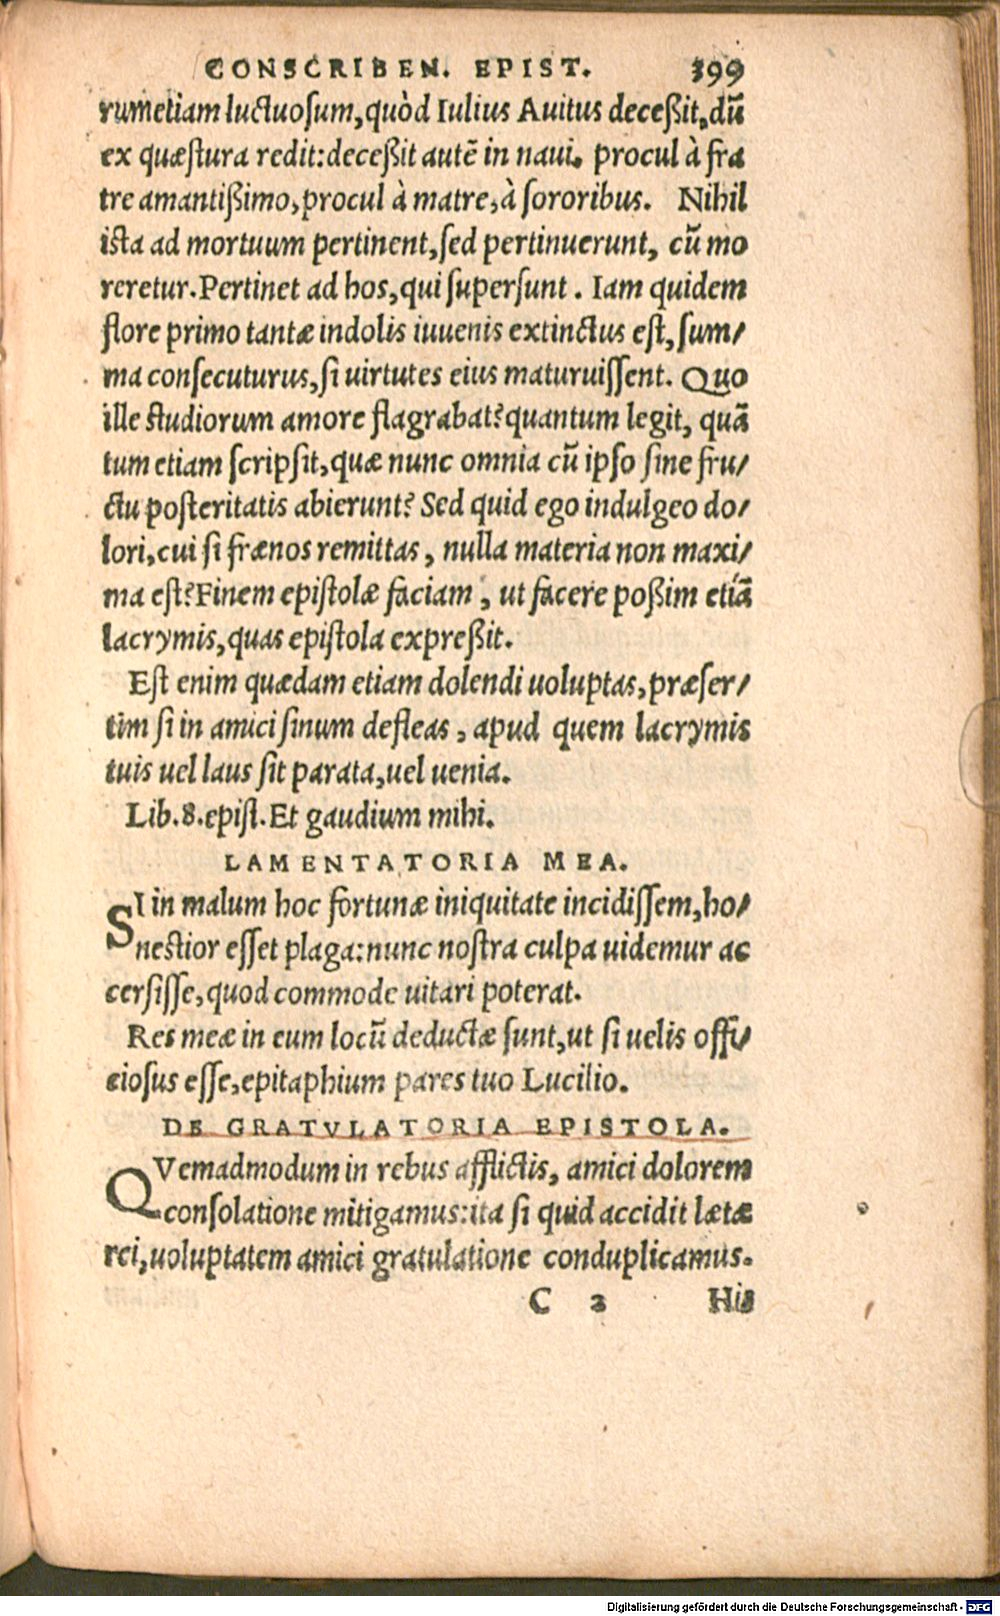 CONSCRIBEN. EPIST. 399
rum etiam luctuosum, quòd Iulius Auitus deceßit, dũ
ex quæstura redit: deceßit autẽ in naui. procul à fra
tre amantißimo, procul à matre, à sororibus. Nihil
ista ad mortuum pertinent, sed pertinuerunt, cũ mo
reretur. Pertinet ad hos, qui supersunt. Iam quidem
flore primo tantæ indolis iuuenis extinctus est, sum/
ma consecuturus, si uirtutes eius maturuissent. Quo
ille studiorum amore flagrabat? quantum legit, quã
tum etiam scripsit, quæ nunc omnia cũ ipso sine fru/
ctu posteritatis abierunt? Sed quid ego indulgeo do/
lori, cui si frænos remittas, nulla materia non maxi/
ma est? Finem epistolæ faciam, ut facere poßim etiã
lacrymis, quas epistola expreßit.
Est enim quædam etiam dolendi uoluptas, præser/
tim si in amici sinum defleas, apud quem lacrymis
tuis uel laus sit parata, uel uenia.
Lib. 8. epist. Et gaudium mihi.
LAMENTATORIA MEA.
SI in malum hoc fortunæ iniquitate incidissem, ho/
nestior esset plaga: nunc nostra culpa uidemur ac
cersisse, quod commode uitari poterat.
Res meæ in eum locũ deductæ sunt, ut si uelis offi/
ciosus esse, epitaphium pares tuo Lucilio.
DE GRATVLATORIA EPISTOLA.
QVemadmodum in rebus afflictis, amici dolorem
consolatione mitigamus: ita si quid accidit lætæ
rei, uoluptatem amici gratulatione conduplicamus.
C 2 His
Digitalisierung gefördert durch die Deutsche Forschungsgemeinschaft - DFG